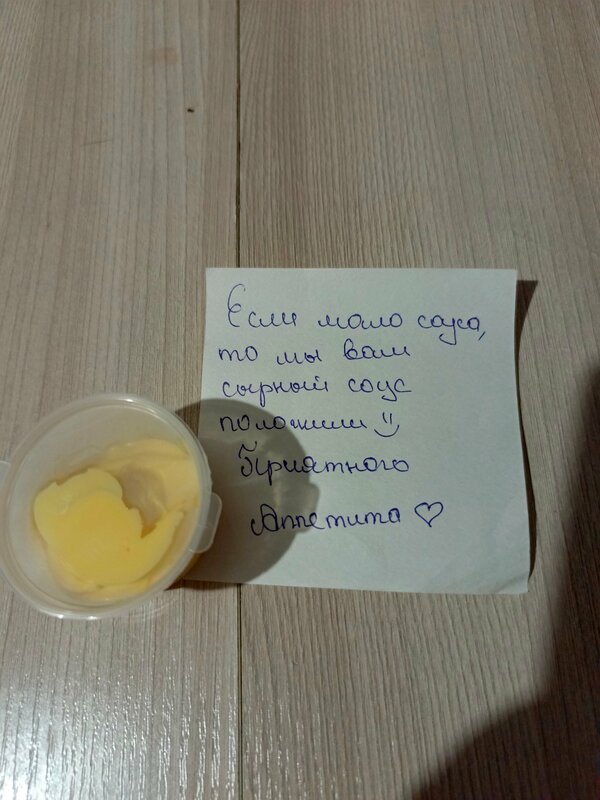 Если мало соуса,
то мы вам
сырный соус
положили
Приятного
Аппетита ♡